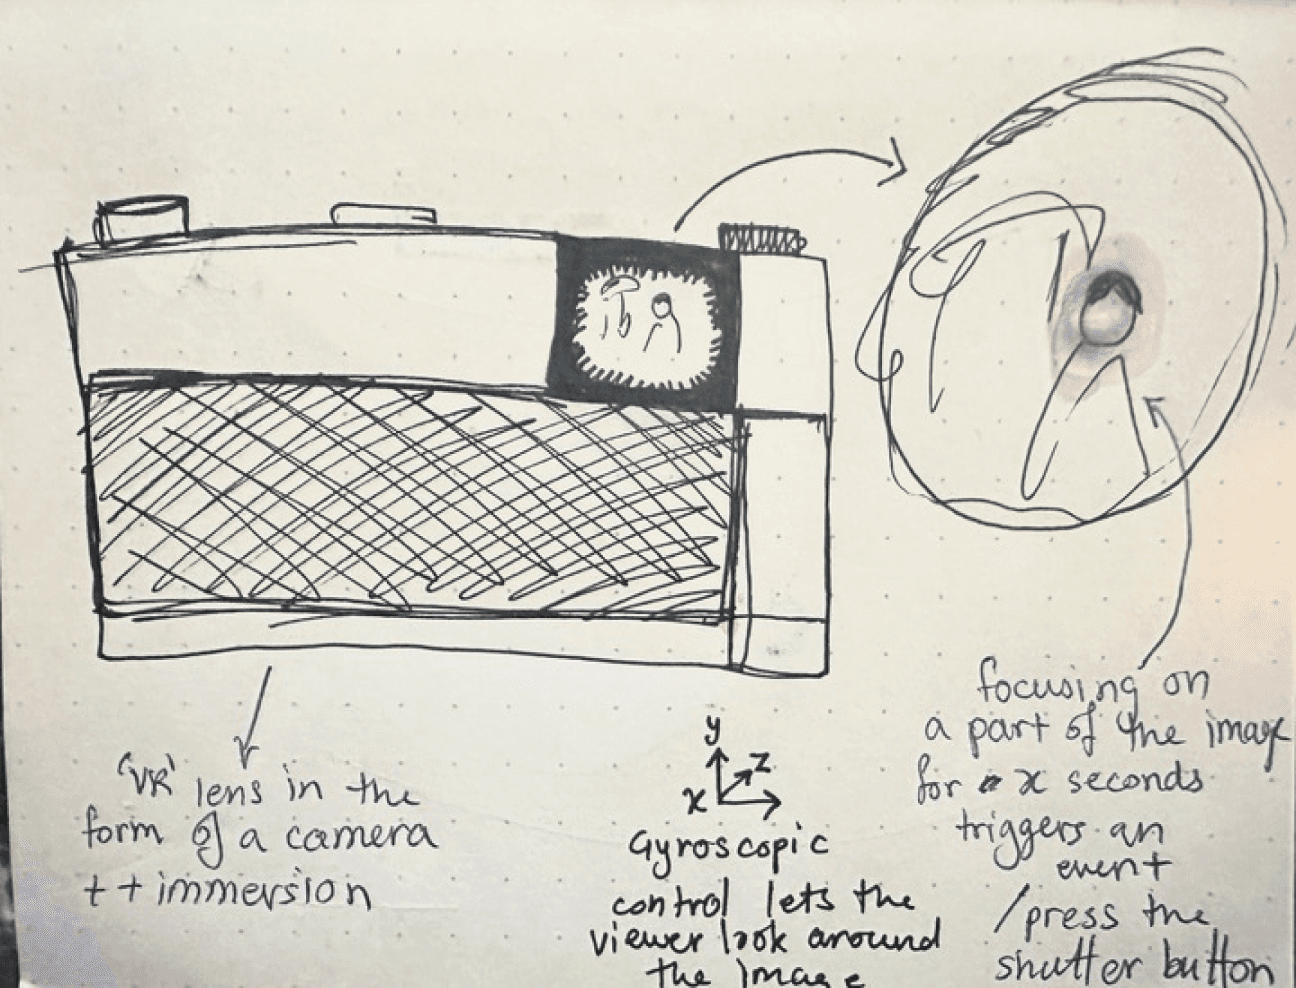 'VR' lens in the
form of a camera
++ immersion
y
z
x
Gyroscopic
control lets the
viewer look around
the image
focusing on
a part of the image
for x seconds
triggers an
event
/press the
shutter button